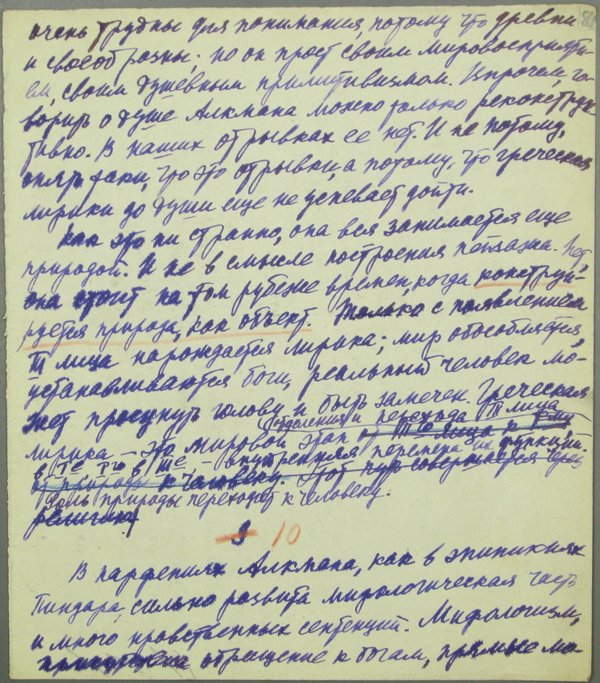 очень трудны для понимания, потому что древни
и своеобразны. но он прост своим мировосприяти-
ем, своим душевным примитивизмом. Впрочем, го-
ворить о душе Алкмана можно только реконструк
тивно. В наших отрывках ее нет. И не потому,
опять таки, что это отрывки, а потому, что греческая
лирика до души еще не успевает дойти.
Как это ни странно, она вся занимается еще
природой. И не в смысле построения пейзажа. Нет
она стоит на том рубеже времен, когда конструи-
руется природа, как объект. Только с появлением
III лица нарождается лирика; мир обособляется,
устанавливаются боги, реальный человек мо-
жет просунуть голову и быть замечен. Греческая
отделения и перехода III лица
лирика – это мировой этап от
в те, то в ше, – внутренняя перемена их функций.
от природы к человеку. Этот путь совершается через
Роль природы переходит к человеку.
религию
9 10
В парфениях Алкмана, как в эпиникиях
Пиндара, сильно развита мифологическая часть
и много нравственных сентенций. Мифологизм,
обращение к богам, прямые мо-